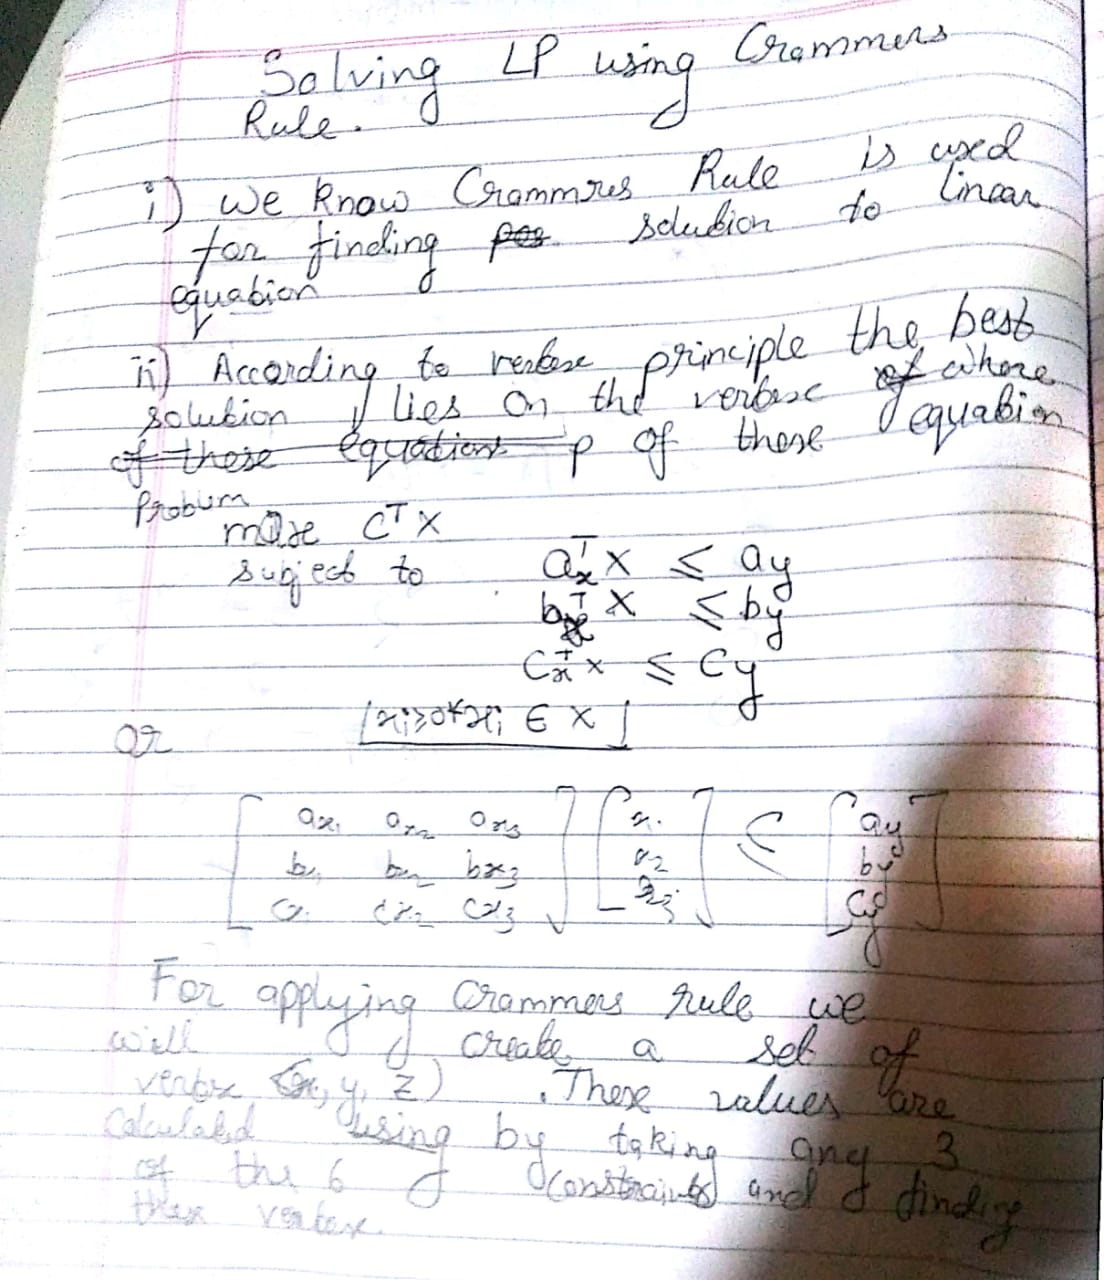 Solving LP using Crammers
Rule.
i) We know Crammres Rule is used
for finding pos solution to linear
equation
ii) According to vertex principle the best
solution lies on the vertex of where
of these equations p of these equation
Problum
max C^T X
subject to a_x^T X ≤ ay
b_x^T X ≤ by
C_x^T x ≤ Cy
[x_i ≥ 0 ∀ x_i ∈ X]
or
[ a_x1 a_x2 a_x3 ] [ x_1 ] ≤ [ ay ]
[ b_x1 b_x2 b_x3 ] [ x_2 ] [ by ]
[ c_x1 c_x2 c_x3 ] [ x_3 ] [ Cy ]
For applying Crammers rule we
will create a set of
vertex (x, y, z). These values are
Calculated using by taking any 3
of the 6 constraints and finding
vertex.